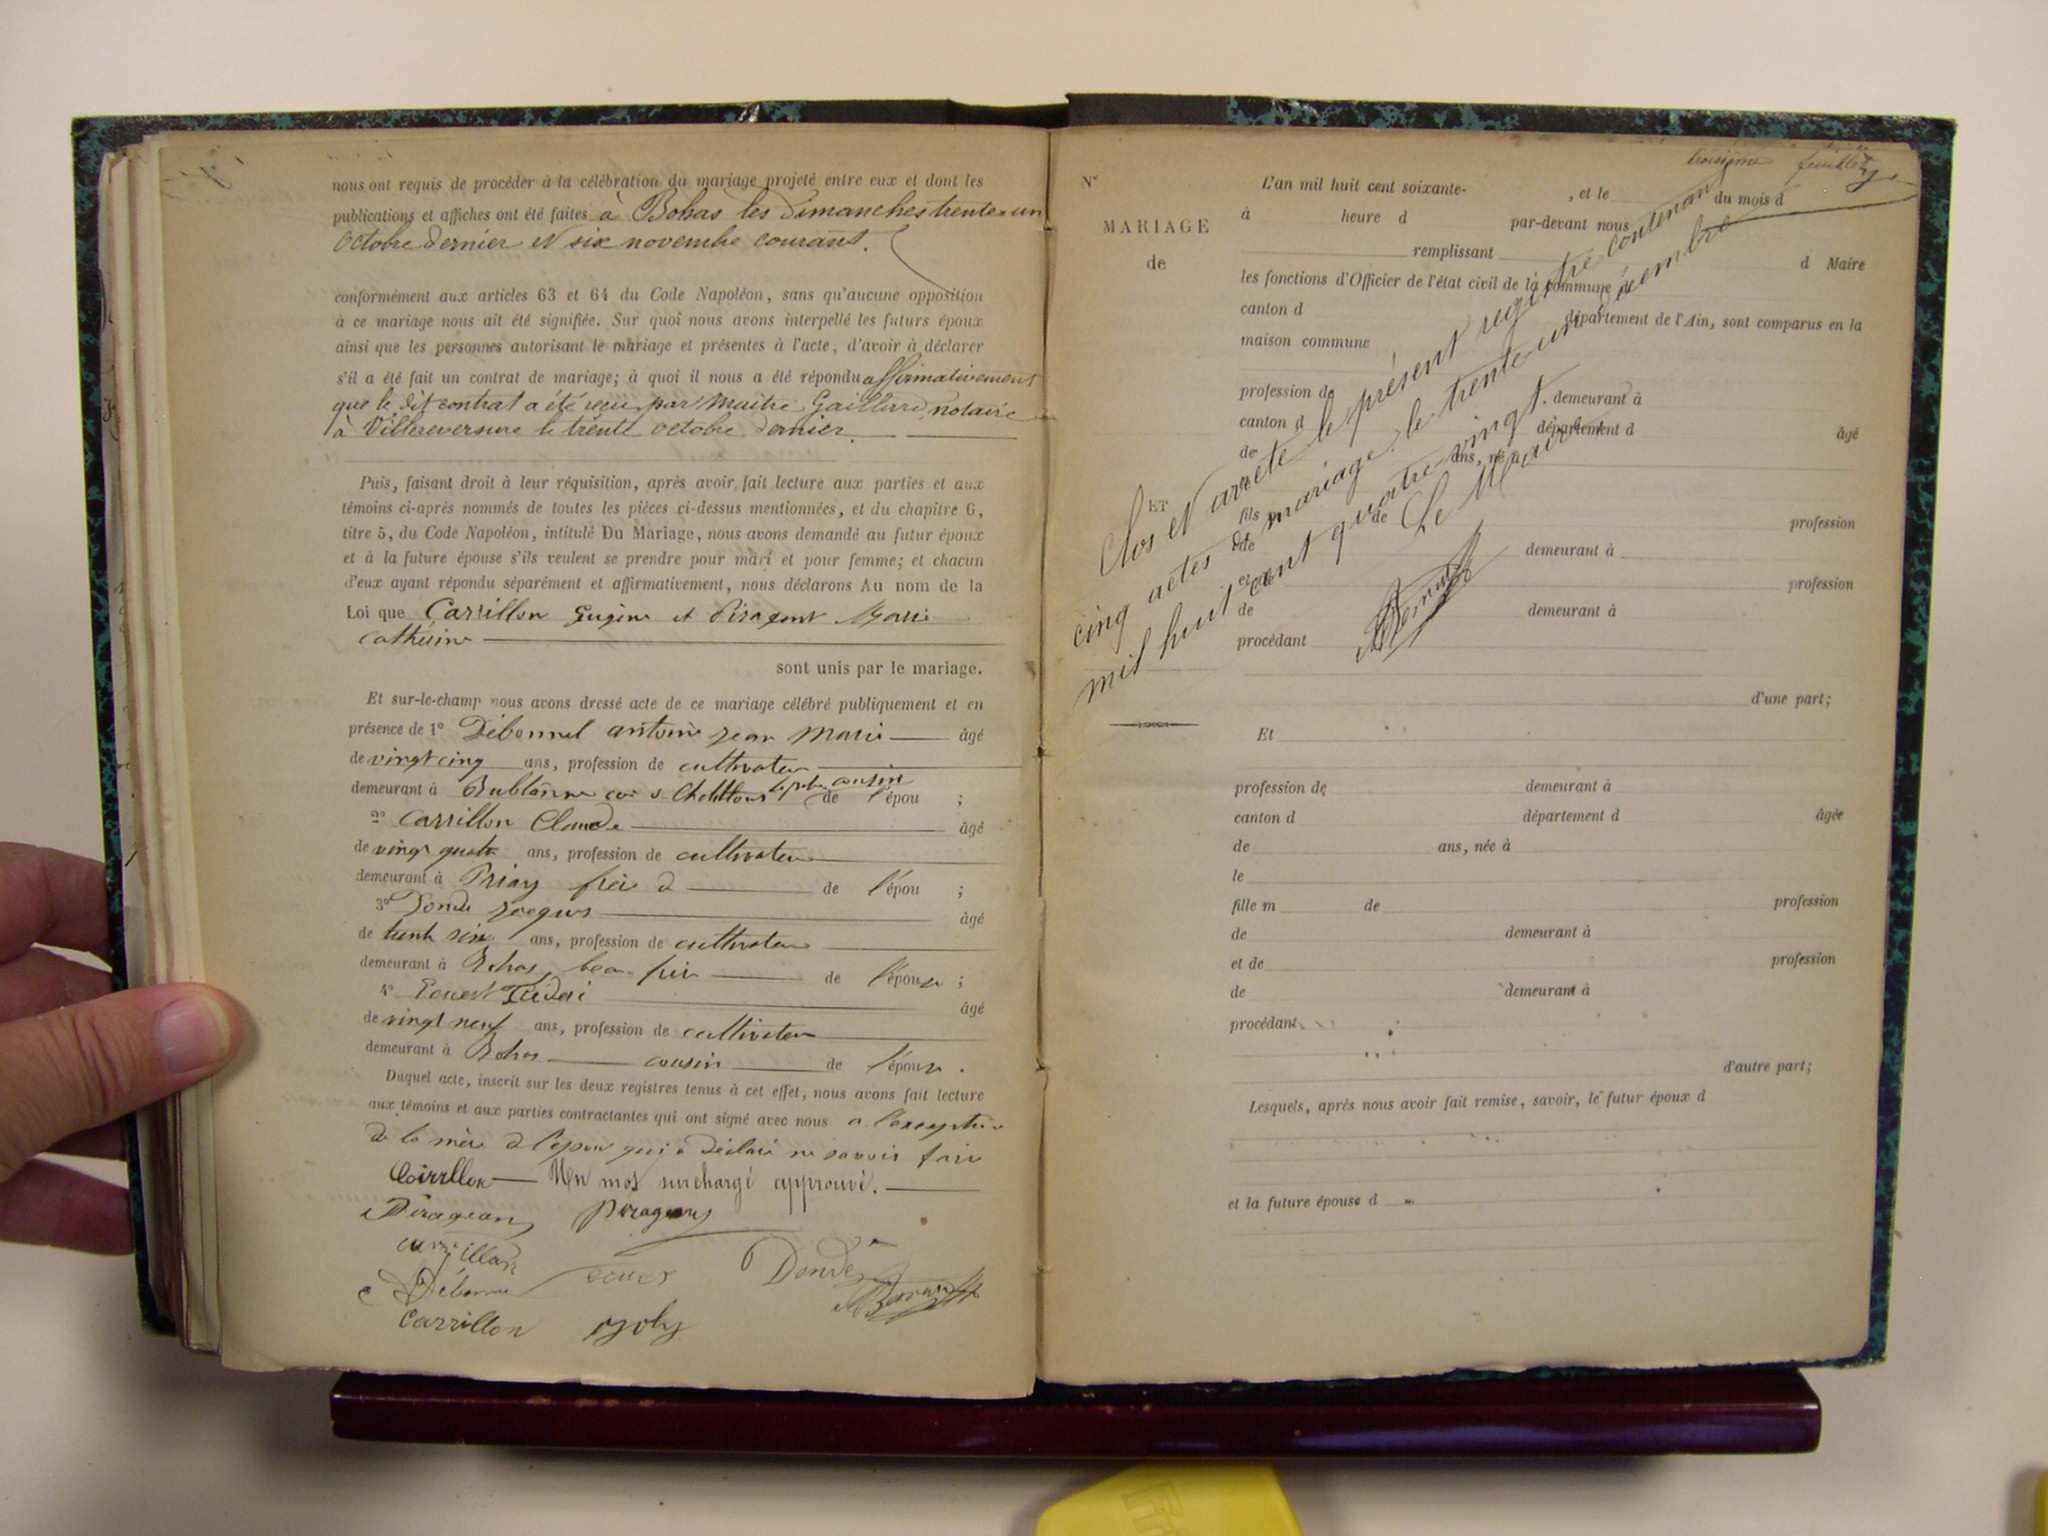 nous ont requis de procéder à la célébration du mariage projeté entre eux et dont les
publications et affiches ont été faites à Bohas les dimanches trente-un
octobre dernier et six novembre courant.
conformément aux articles 63 et 64 du Code Napoléon, sans qu'aucune opposition
à ce mariage nous ait été signifiée. Sur quoi nous avons interpellé les futurs époux
ainsi que les personnes autorisant le mariage et présentes à l'acte, d'avoir à déclarer
s'il a été fait un contrat de mariage; à quoi il nous a été répondu affirmativement
que le dit contrat a été reçu par Maître Gaillard, notaire
à Villereversure le trente octobre dernier.
Puis, faisant droit à leur réquisition, après avoir fait lecture aux parties et aux
témoins ci-après nommés de toutes les pièces ci-dessus mentionnées, et du chapitre 6,
titre 5, du Code Napoléon, intitulé Du Mariage, nous avons demandé au futur époux
et à la future épouse s'ils veulent se prendre pour mari et pour femme; et chacun
d'eux ayant répondu séparément et affirmativement, nous déclarons Au nom de la
Loi que Carrillon Eugène et Piragean Marie
Cathérine
sont unis par le mariage.
Et sur-le-champ nous avons dressé acte de ce mariage célébré publiquement et en
présence de 1º antoine jean Marie âgé
de vingt cinq ans, profession de cultivateur
demeurant à cousin de l'épou ;
2º Carrillon Claude âgé
de vingt quatre ans, profession de cultivateur
demeurant à Priay frère d de l'épou ;
3º Dondé Jacques âgé
de trente six ans, profession de cultivateur
demeurant à Bohas beau frère de l'épouse ;
4º âgé
de vingt neuf ans, profession de cultivateur
demeurant à Bohas cousin de l'épouse .
Duquel acte, inscrit sur les deux registres tenus à cet effet, nous avons fait lecture
aux témoins et aux parties contractantes qui ont signé avec nous a l'exception
de la mère de l'époux qui a déclaré ne savoir faire
Carrillon Un mot surchargé approuvé.
Piragean Piragean
Carrillon
Dondé
Carrillon Joly
troisième feuillet
Nº
MARIAGE
de
ET
L'an mil huit cent soixante- , et le du mois d
à heure d par-devant nous
remplissant d Maire
les fonctions d'Officier de l'état civil de la commune d
canton d département de l'Ain, sont comparus en la
maison commune
profession de demeurant à
canton d département d âgé
de ans, né à
fils de profession
de demeurant à
et de profession
de demeurant à
procédant
d'une part;
Clos et arrêté le présent registre contenant
cinq actes de mariage, le trente un décembre
mil huit cent quatre vingt.
Le Maire
Et
profession de demeurant à
canton d département d âgée
de ans, née à
le
fille m de profession
de demeurant à
et de profession
de demeurant à
procédant
d'autre part;
Lesquels, après nous avoir fait remise, savoir, le futur époux d
et la future épouse d